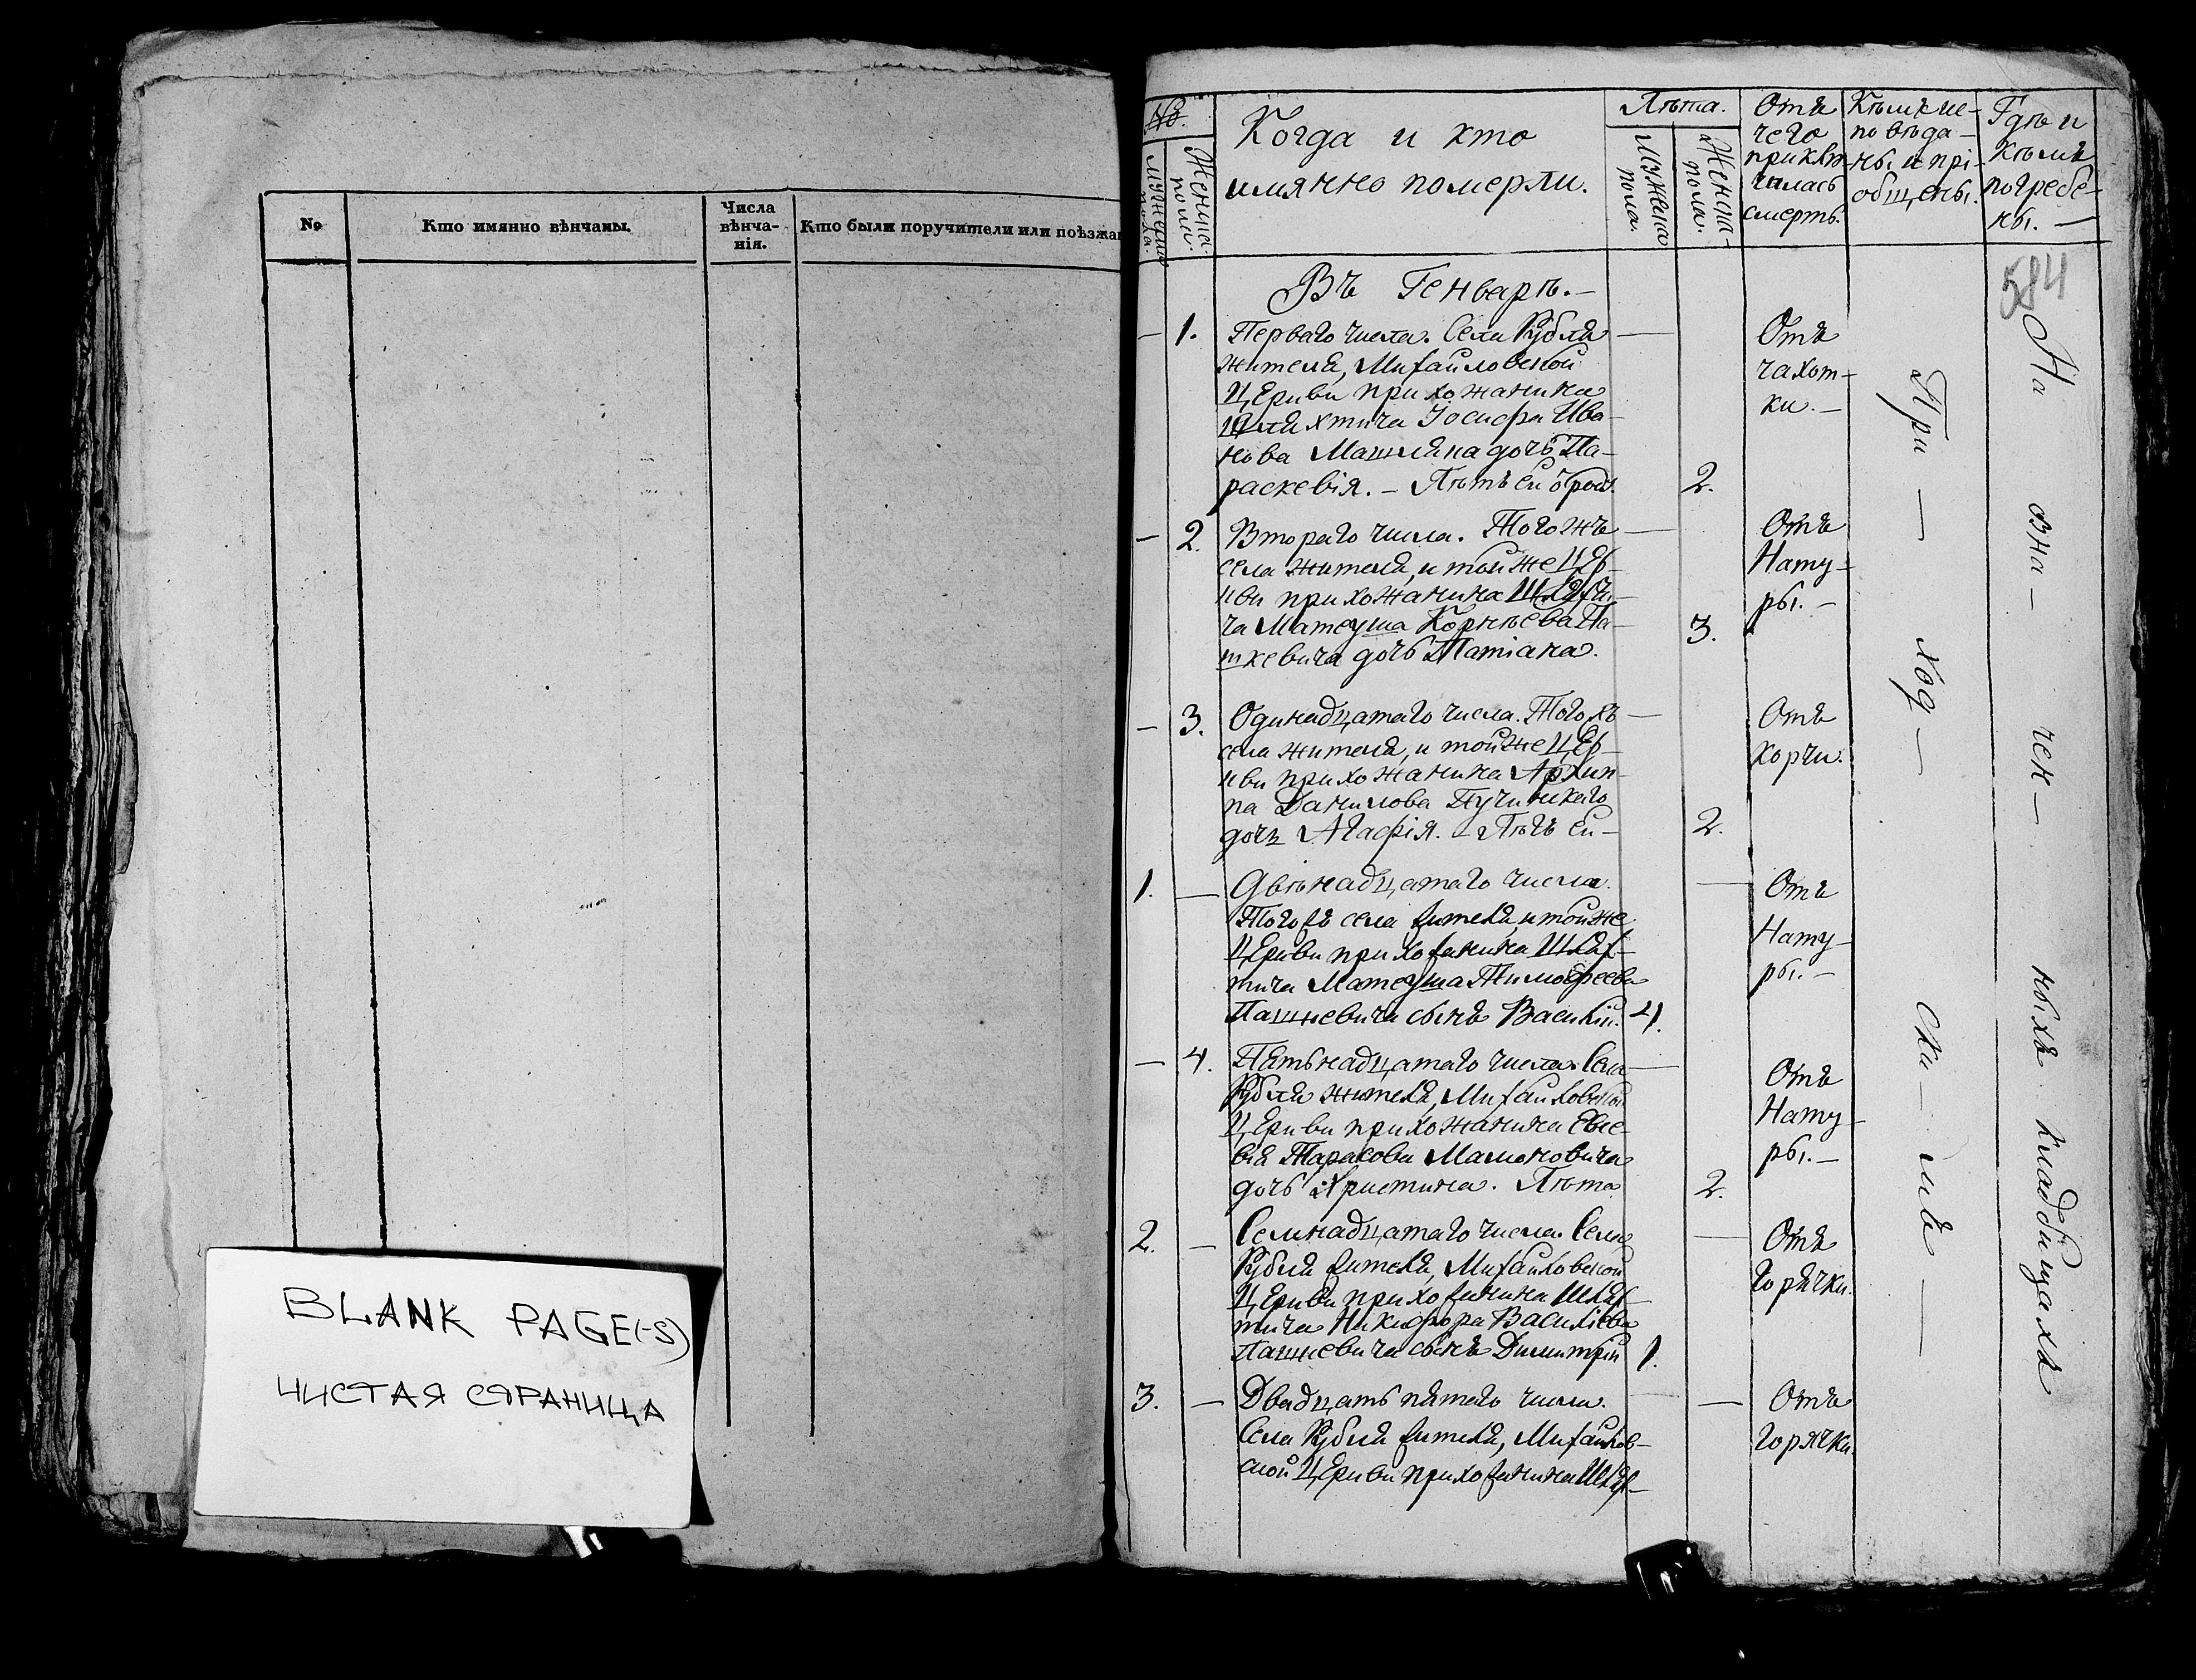 №
Кто имянно вѣнчаны.
Числа
вѣнча-
нія.
Кто были поручители или поѣзжа
BLANK PAGE(-S)
ЧИСТАЯ СТРАНИЦА
№.
Мужеска
пола.
Женска-
пола.
Когда и кто
имянно померли.
Лѣта.
Мужеска
пола.
Женска-
пола.
Отъ
чего
приклю-
чилась
смерть.
Кѣмъ ис-
повѣда-
ны. и прі-
общены.
Гдѣ и
кѣмъ
погребе-
ны. —
584
Въ Генварѣ. —
— 1. Перваго числа. Села Рубля —
жителя, Михайловской
Церкви прихожанина
Шляхтича Іосифа Ива-
нова Машляка дочь Па-
раскевія. — Лѣтъ ей 2.
Отъ
чахот-
ки. —
— 2. Втораго числа. Того жъ —
села жителя, и той же Цер-
кви прихожанина Шляхти-
ча Матеуша Корнѣева Па-
шкевича дочь Татіана. 3.
Отъ
Нату-
ры. —
— 3. Одинадцатаго числа. Того жъ —
села жителя, и той же Цер-
кви прихожанина Архип-
па Данилова
дочь Агафія. — Лѣтъ ей — 2.
Отъ
корчи.
1. — Двѣнадцатаго числа. —
Того жъ села жителя, и той же
Церкви прихожанина Шлях-
тича Матеуша Тимофеева
Пашкевича сынъ Василій. 4.
Отъ
Нату-
ры. —
— 4. Пятьнадцатаго числа. Села —
Рубля жителя, Михайловской
Церкви прихожанина Евсе-
вія Тарасова Мамоновича
дочь Христина. Лѣта 2.
Отъ
Нату-
ры. —
2. — Семнадцатаго числа. Села —
Рубля жителя, Михайловской
Церкви прихожанина Шлях-
тича Никифора Василіева
Пашкевича сынъ Димитрій 1.
Отъ
горячки.
3. — Двадцать пятаго числа. —
Села Рубля жителя, Михайлов-
ской Церкви прихожанина Шлях-
Отъ
горячки
При — ход — ски — мъ —
На зна — чен — ныхъ кладбищахъ